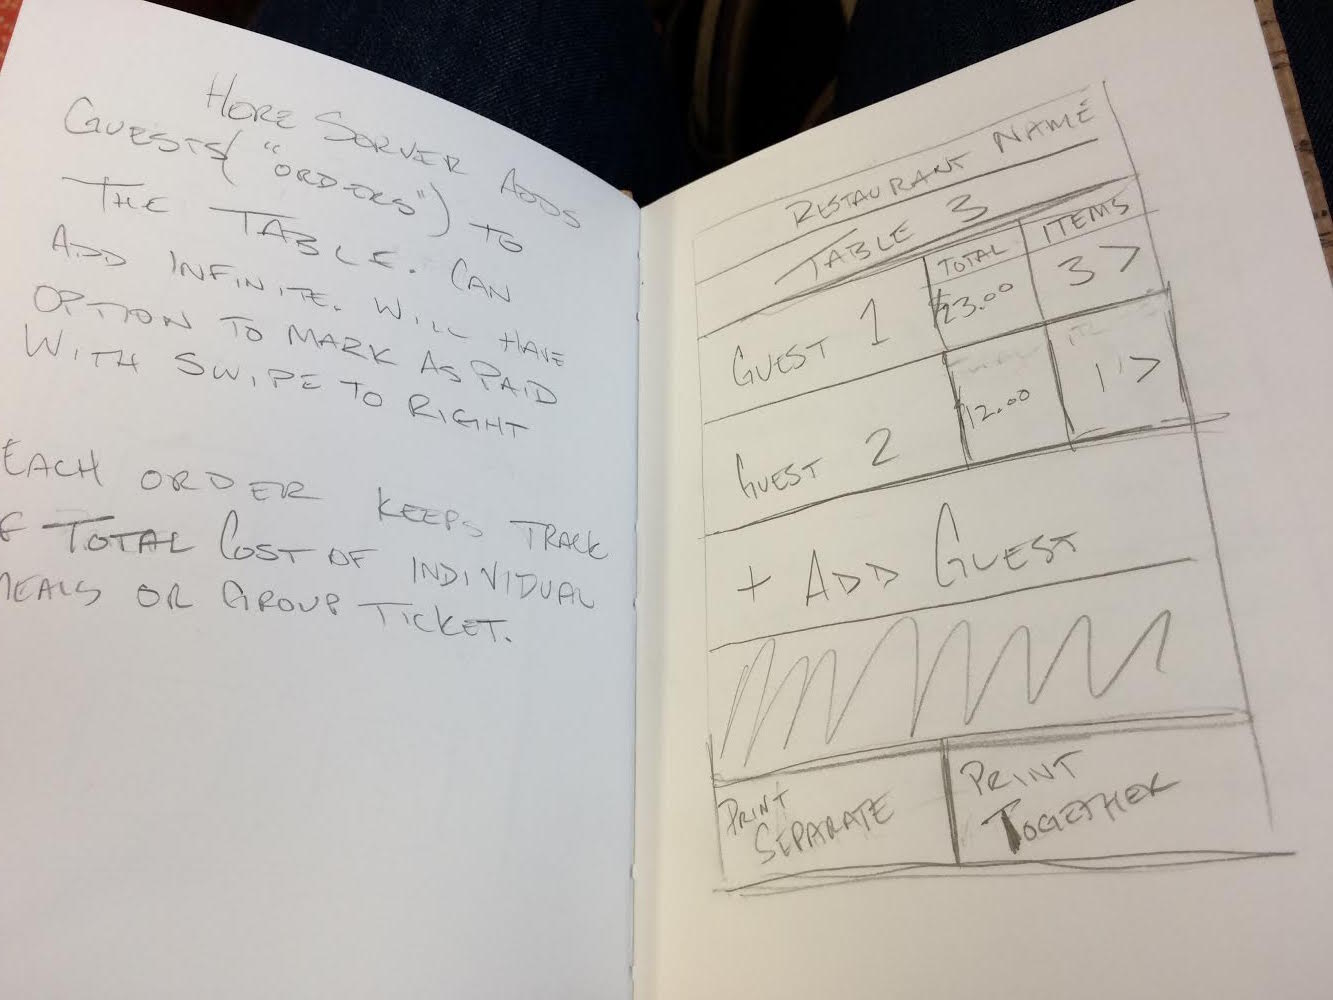 HERE SERVER ADDS
GUESTS ("ORDERS") TO
THE TABLE. CAN
ADD INFINITE. WILL HAVE
OPTION TO MARK AS PAID
WITH SWIPE TO RIGHT
EACH ORDER KEEPS TRACK
F TOTAL COST OF INDIVIDUAL
MEALS OR GROUP TICKET.
RESTAURANT NAME
TABLE 3
TOTAL ITEMS
GUEST 1 $23.00 3 >
GUEST 2 12.00 1 >
+ ADD GUEST
PRINT
SEPARATE
PRINT
TOGETHER